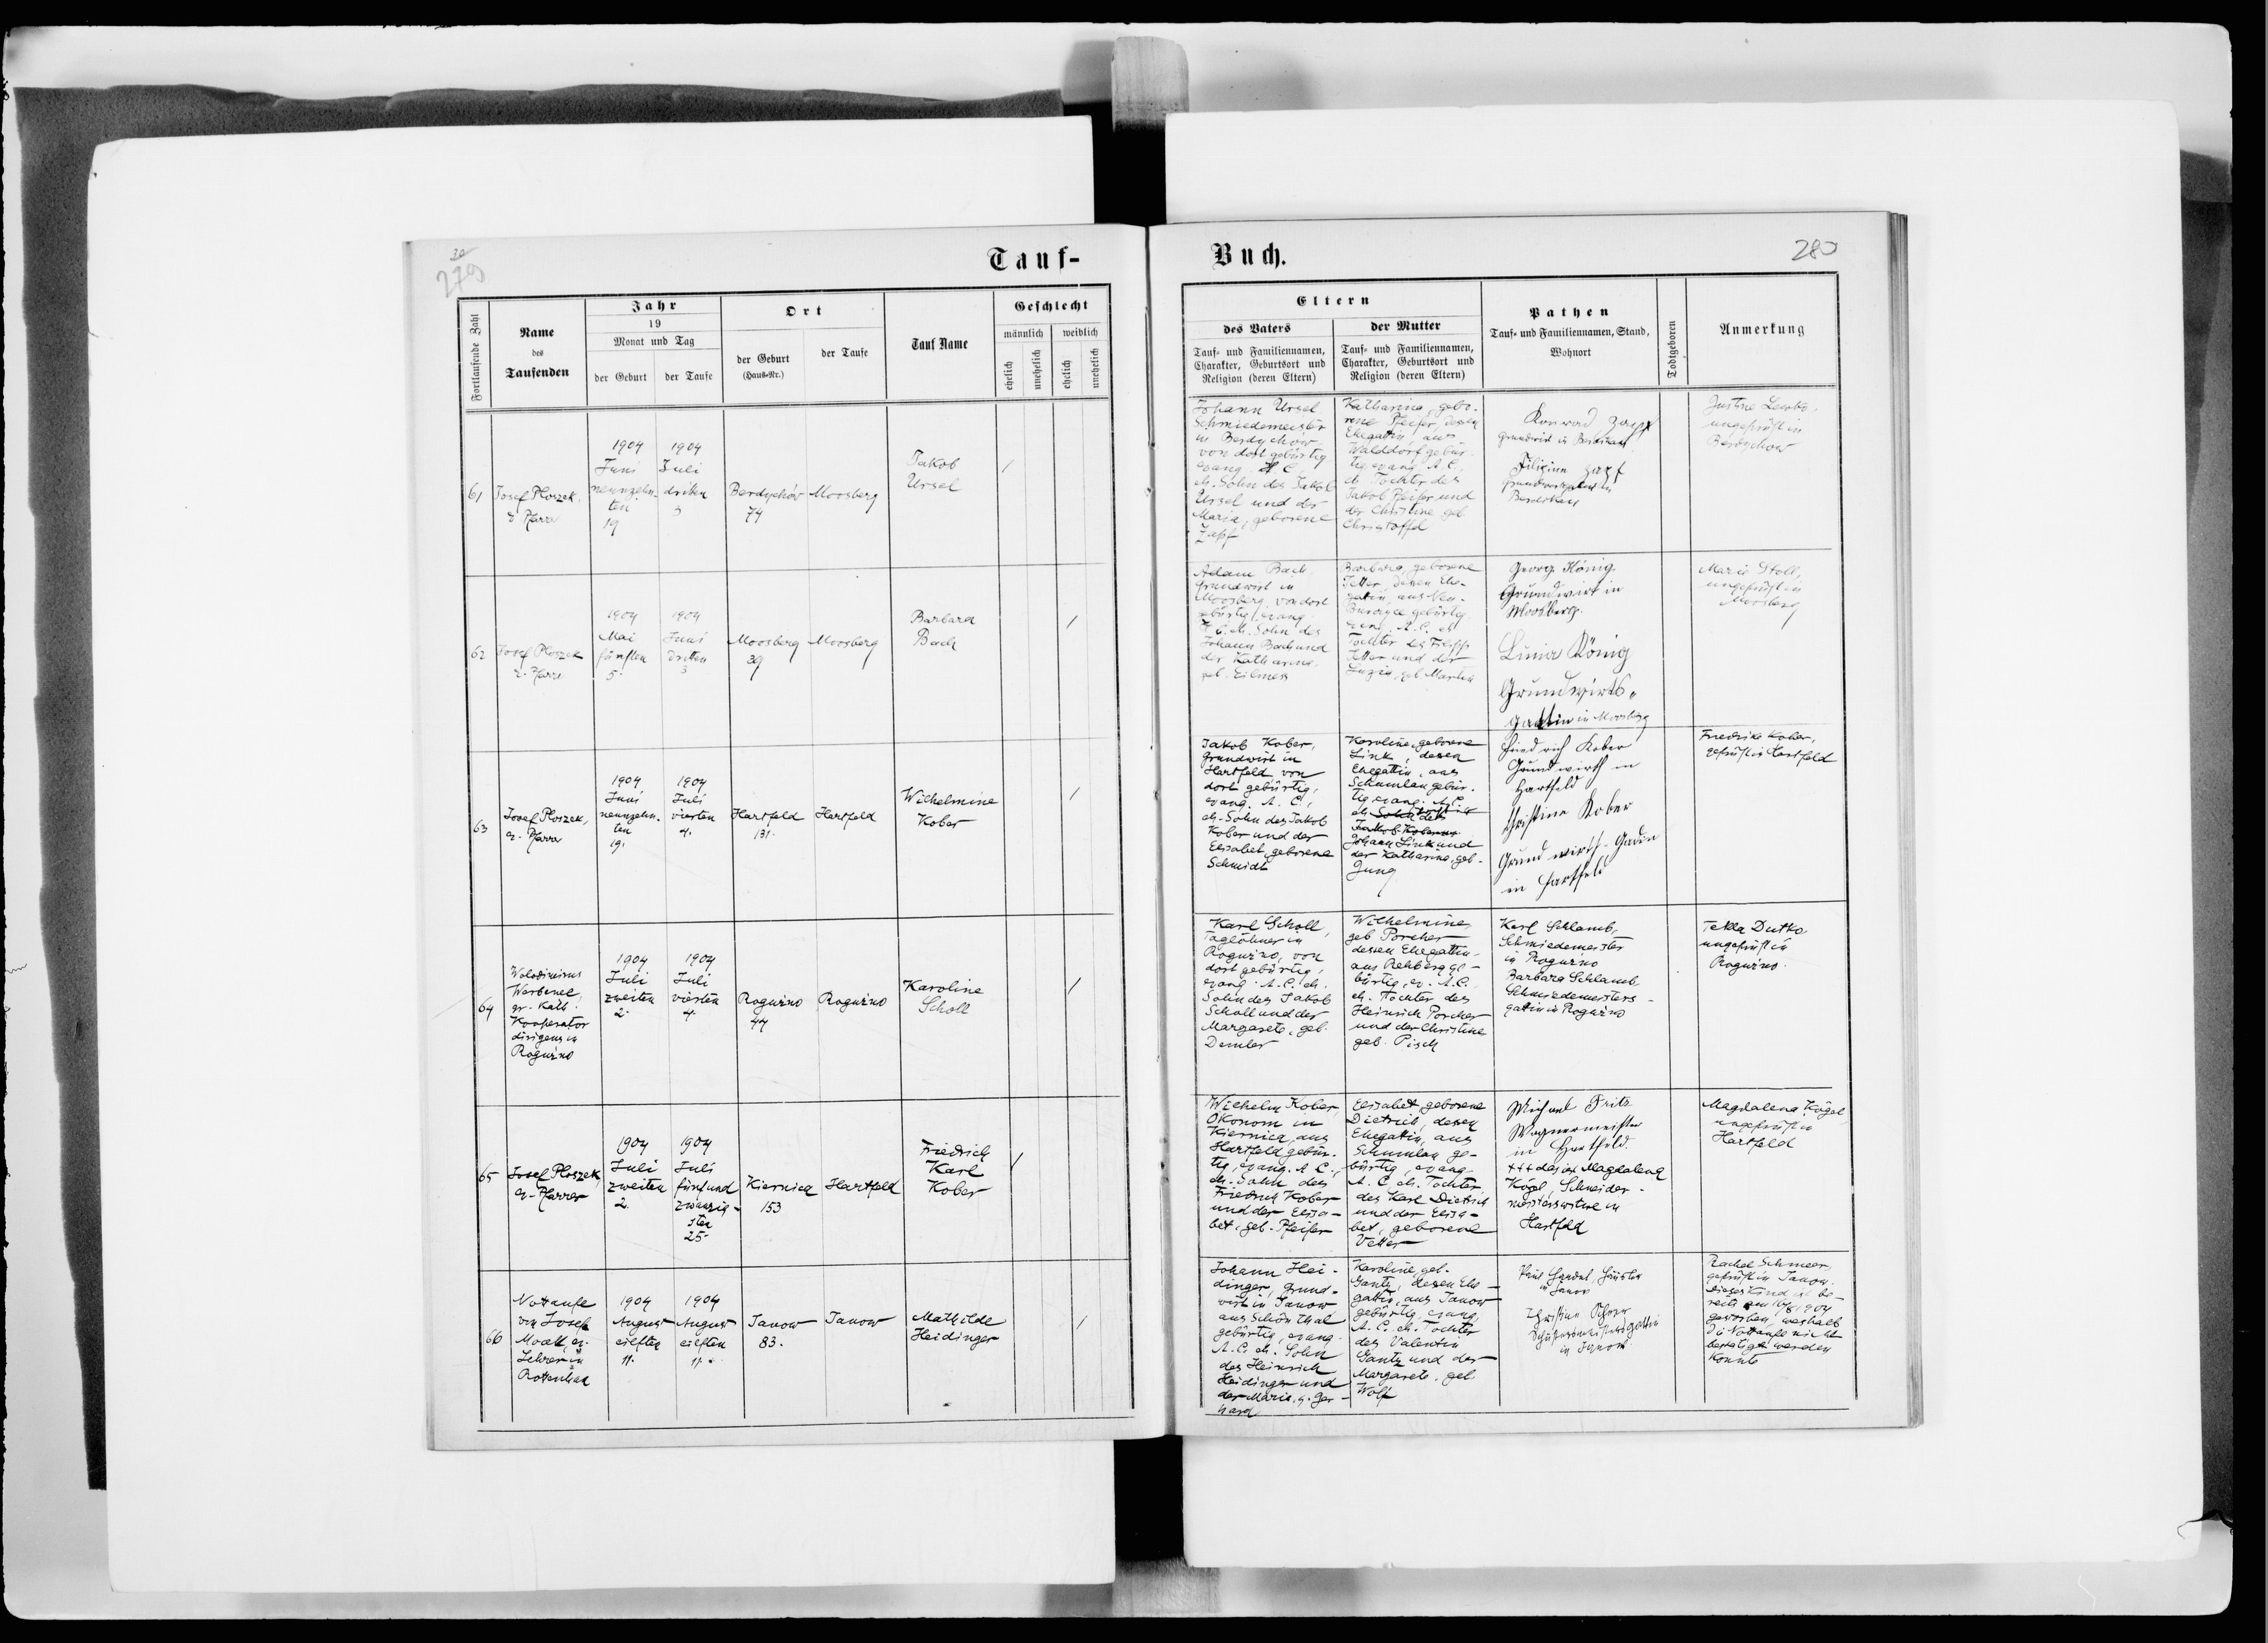 30
279
Tauf-
Buch.
280
Fortlaufende Zahl
Name
des
Taufenden
Jahr
19
Monat und Tag
der Geburt
der Taufe
Ort
der Geburt
(Haus-Nr.)
der Taufe
Tauf Name
Geschlecht
männlich
weiblich
ehelich
unehelich
ehelich
unehelich
Eltern
des Vaters
Tauf- und Familiennamen,
Charakter, Geburtsort und
Religion (deren Eltern)
der Mutter
Tauf- und Familiennamen,
Charakter, Geburtsort und
Religion (deren Eltern)
Pathen
Tauf- und Familiennamen, Stand,
Wohnort
Todtgeboren
Anmerkung
61
Josef Ploszek,
e. Pfarrer
1904
Juni
neunzehn-
ten
19
1904
Juli
dritten
3
Berdychów
74
Moosberg
Jakob
Ursel
/
Johann Ursel
Schmiedemeister
in Berdychow
von dort gebürtig
evang. C.
eh. Sohn des Jakob
Ursel und der
Maria, geborene
Zapf
Katharina, gebo-
rene Pfeifer, dessen
Ehegattin, aus
Walddorf gebür-
tig, evang. A. C.
eh. Tochter des
Jakob Pfeifer und
der Christine geb.
Christoffel
Konrad Zapf
Grundwirt in
Filipine Zapf
in
Justine
ungeprüft in
Berdychow
62
Josef Ploszek
e. Pfarrer
1904
Mai
fünften
5.
1904
Juni
dritten
3
Moosberg
39
Moosberg
Barbara
Bach
/
Adam Bach
Grundwirt in
Moosberg, von dort
gebürtig, evang.
eh. Sohn des
Johann Bach und
der Katharina,
geb. Eilmes
Barbara, geborene
dessen Ehe-
gattin, aus Neu-
gebürtig
evang. A. C. eh.
Tochter des
und der
geb.
Georg König
Grundwirt in
Moosberg.
König
Grundwirts-
gattin in Moosberg
Marie Stoll,
ungeprüft in
Moosberg
63
Josef Ploszek,
ev. Pfarrer
1904
Juni
neunzehn-
ten
19.
1904
Juli
vierten
4.
Hartfeld
131.
Hartfeld
Wilhelmine
Kober
/
Jakob Kober,
Grundwirt in
Hartfeld von
dort gebürtig,
evang. A. C.,
eh. Sohn des Jakob
Kober und der
Elisabet, geborene
Schmidt
Karoline, geborene
Link, dessen
Ehegattin, aus
Schumlau gebür-
tig, evang. A. C.
eh. Sohn des
Jakob Kober
Johann Link und
der Katharina, geb.
Jung
Friedrich Kober
Grundwirth in
Hartfeld
Christine Kober
Grundwirth-Gattin
in Hartfeld
Friedrike Kober,
geprüft in Hartfeld
64
gr.-kath.
Kooperator
dirigens in
Roguźno
1904
Juli
zweiten
2.
1904
Juli
vierten
4.
Roguźno
44
Roguźno
Karoline
Scholl
/
Karl Scholl,
Taglöhner in
Roguźno, von
dort gebürtig,
evang. A. C. eh.
Sohn des Jakob
Scholl und der
Margarete, geb.
Demler
Wilhelmine
geb Porcher
dessen Ehegattin
aus Rehberg ge-
bürtig, ev. A. C.
eh. Tochter des
Heinrich Porcher
und der Christine
geb. Pisch
Karl Schlamb,
Schmiedemeister
in Roguźno
Barbara Schlamb,
Schmiedemeisters-
gattin in Roguźno
Tekla Dutko
ungeprüft in
Roguźno.
65
Josef Ploszek
ev. Pfarrer
1904
Juli
zweiten
2.
1904
Juli
fünfund
zwanzig-
sten
25.
Kiernica
153
Hartfeld
Friedrich
Karl
Kober
/
Wilhelm Kober,
Ökonom in
Kiernica, aus
Hartfeld gebür-
tig, evang. A. C.,
eh. Sohn des
Friedrich Kober
und der Elisa-
bet, geb. Pfeifer
Elisabet, geborene
Dietrich, dessen
Ehegattin, aus
Schumlau ge-
bürtig, evang.
A. C. eh. Tochter
des Karl Dietrich
und der Elisa-
bet, geborene
Vetter
Michael Fritz
Wagnermeister
in Hartfeld
+++ das ist Magdalena
Kögel, Schneider-
meisterswitwe in
Hartfeld
Magdalena Kögel,
ungeprüft in
Hartfeld
66
Nottaufe
von Josef
ev.
Lehrer in
Rottenhan
1904
August
eilften
11.
1904
August
eilften
11.
Janow
83.
Janow
Mathilde
Heidinger
/
Johann Hei-
dinger, Grund-
wirt in Janow
aus Schönthal
gebürtig, evang.
A. C. eh. Sohn
des Heinrich
Heidinger und
der Marie, g. Ger-
hard
Karoline, geb.
Gantz, dessen Ehe-
gattin, aus Janow
gebürtig, evang.
A. C. eh. Tochter
des Valentin
Gantz und der
Margarete, geb.
Wolf
in Janow
Christine
Schustermeistersgattin
in Janow
Rachel Schmeer,
geprüft in Janow.
Dieses Kind ist be-
reits am 16/8 1904
gestorben, weshalb
die Nottaufe nicht
bestätigt werden
konnte